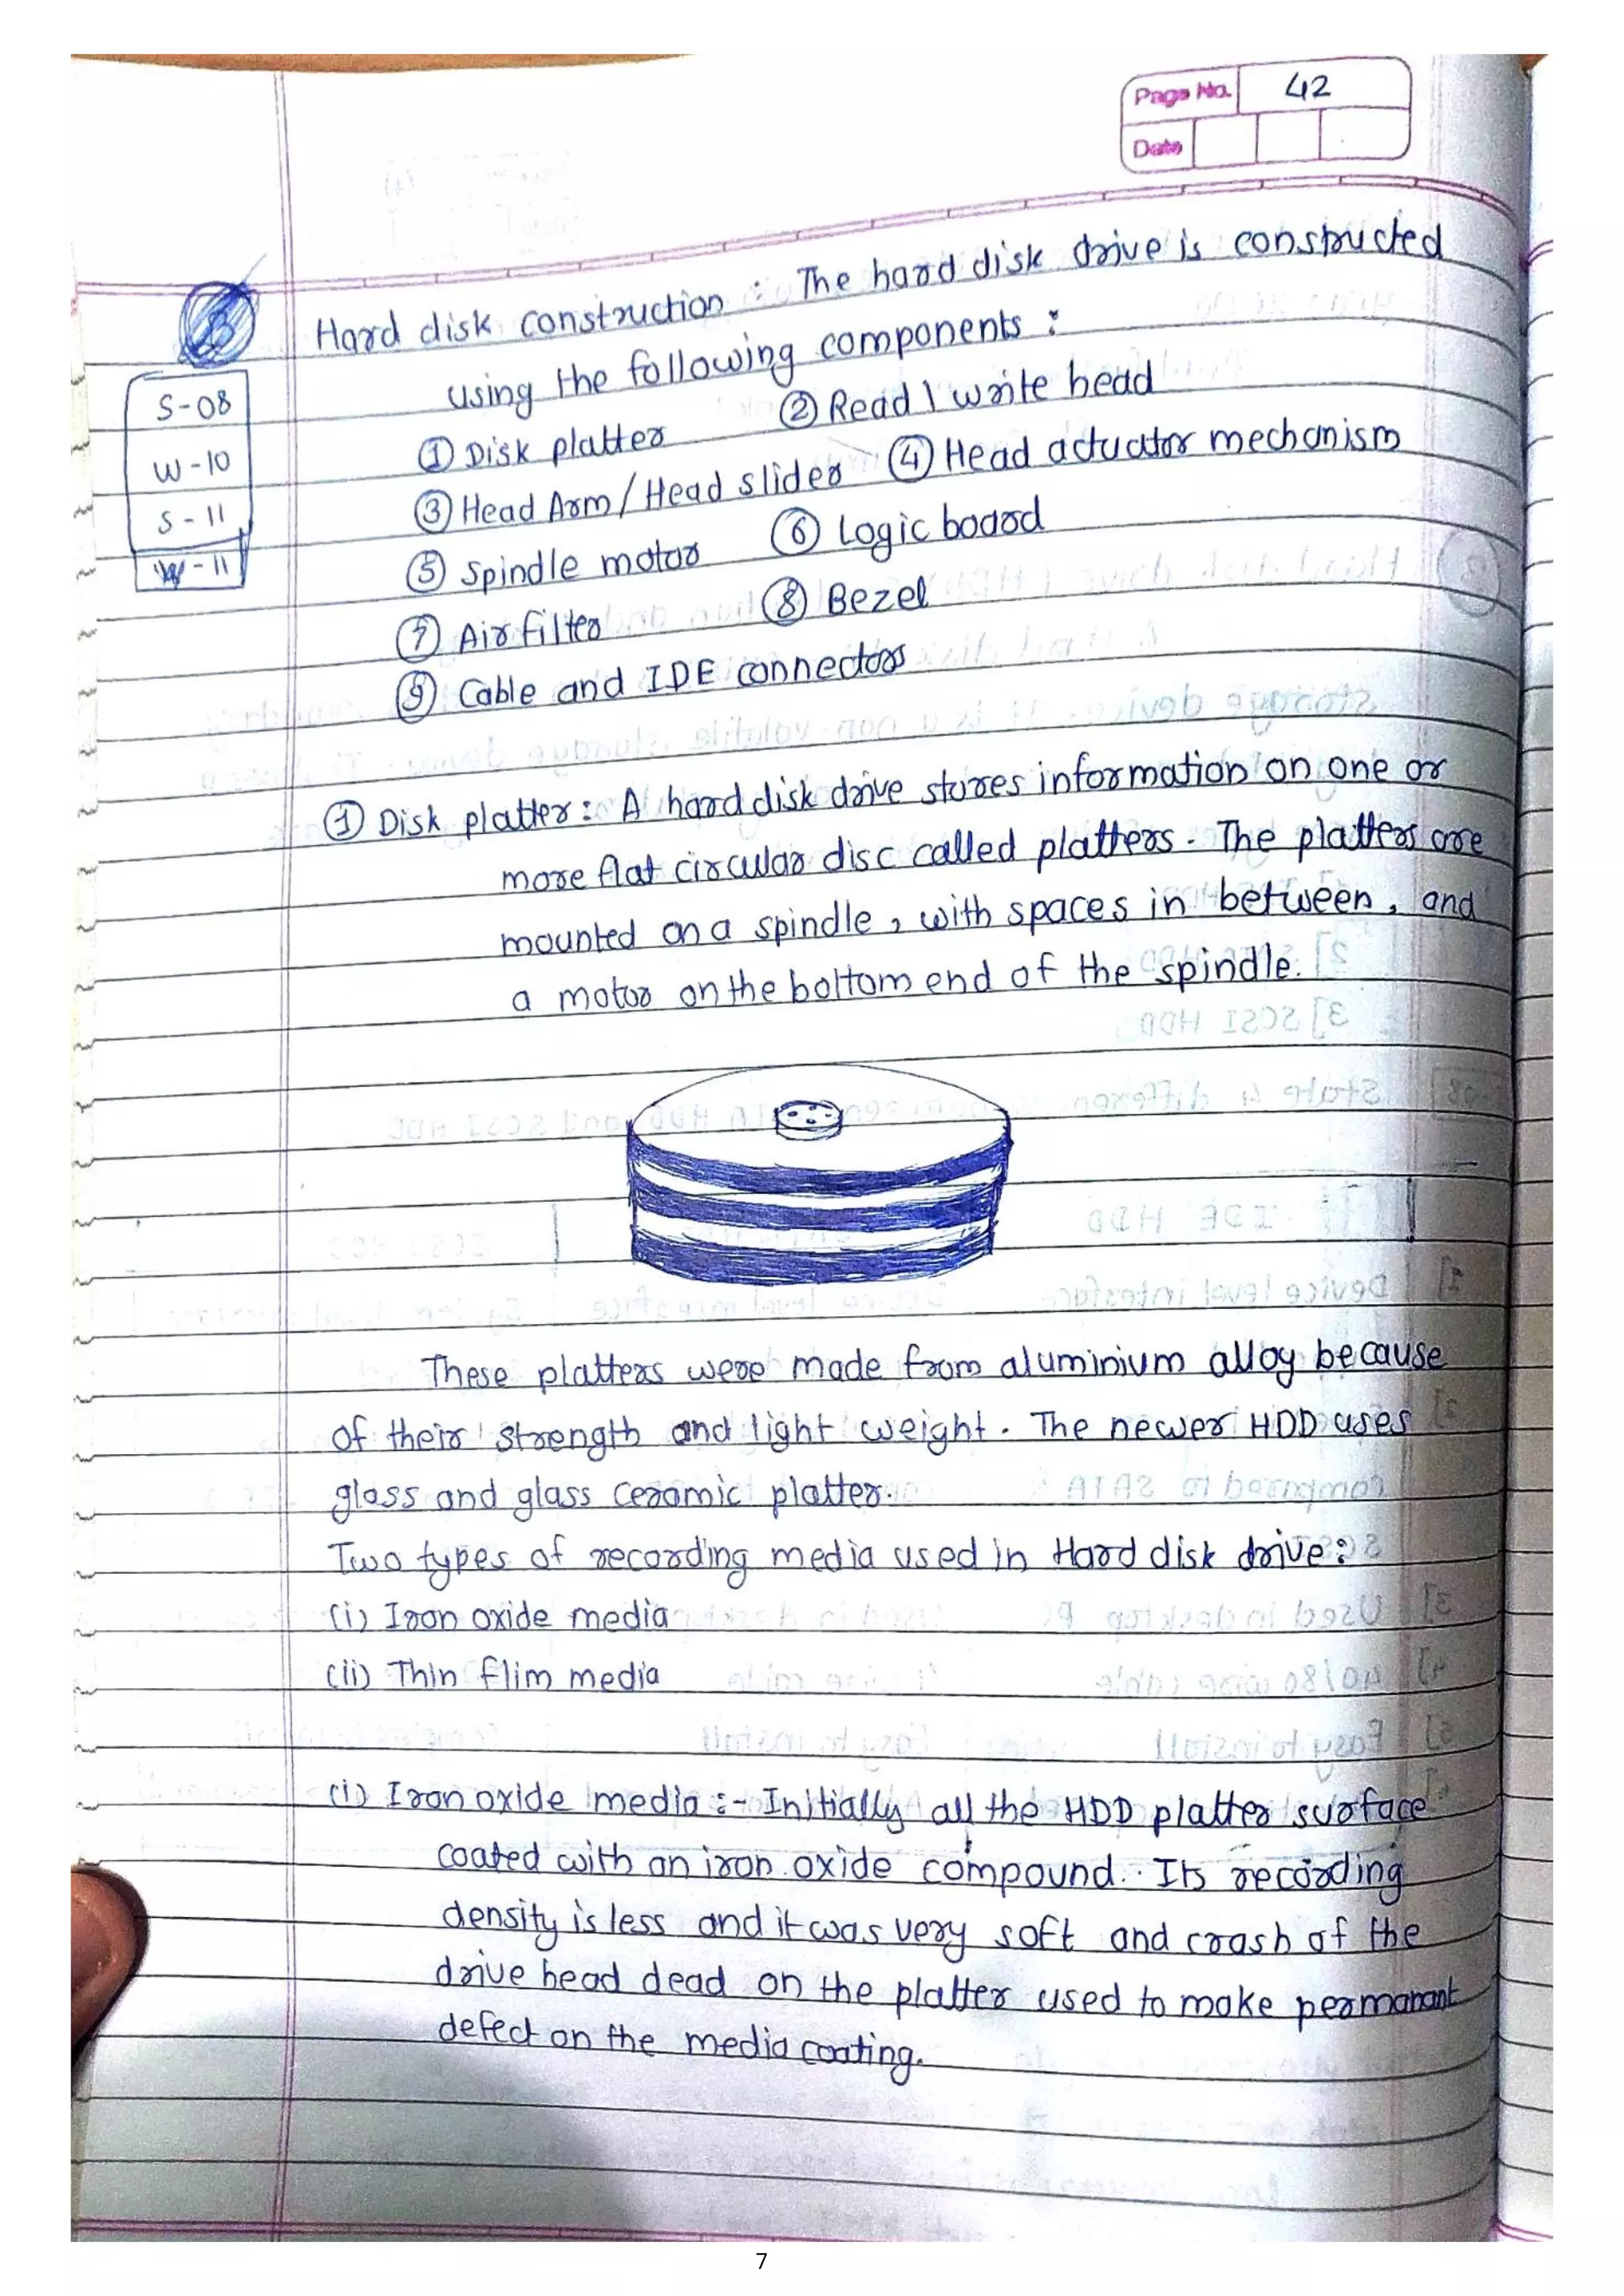 Page No. 42
Date
Hard disk construction : The hard disk drive is constructed
using the following components :
S-08
W-10
S-11
W-11
① Disk platter ② Read \ write head
③ Head Arm / Head slider ④ Head actuator mechanism
⑤ Spindle motor ⑥ Logic board
⑦ Air filter ⑧ Bezel
⑨ Cable and IDE connectors
① Disk platter : A hard disk drive stores information on one or
more flat circular disc called platters. The platters are
mounted on a spindle, with spaces in between, and
a motor on the bottom end of the spindle.
These platters were made from aluminium alloy because
of their strength and light weight. The newer HDD uses
glass and glass ceramic platter.
Two types of recording media used in Hard disk drive :
(i) Iron oxide media
(ii) Thin flim media
(i) Iron oxide media :- Initially all the HDD platter surface
coated with an iron oxide compound. Its recording
density is less and it was very soft and crash of the
drive head dead on the platter used to make permanant
defect on the media coating.
7